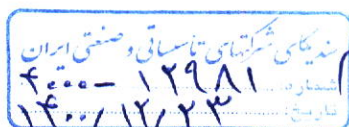 سندیکای شرکتهای تاسیساتی و صنعتی ایران
شماره: ۴۰۰۰-۱۲۹۸۱
تاریخ: ۱۴۰۰/۱۲/۲۳